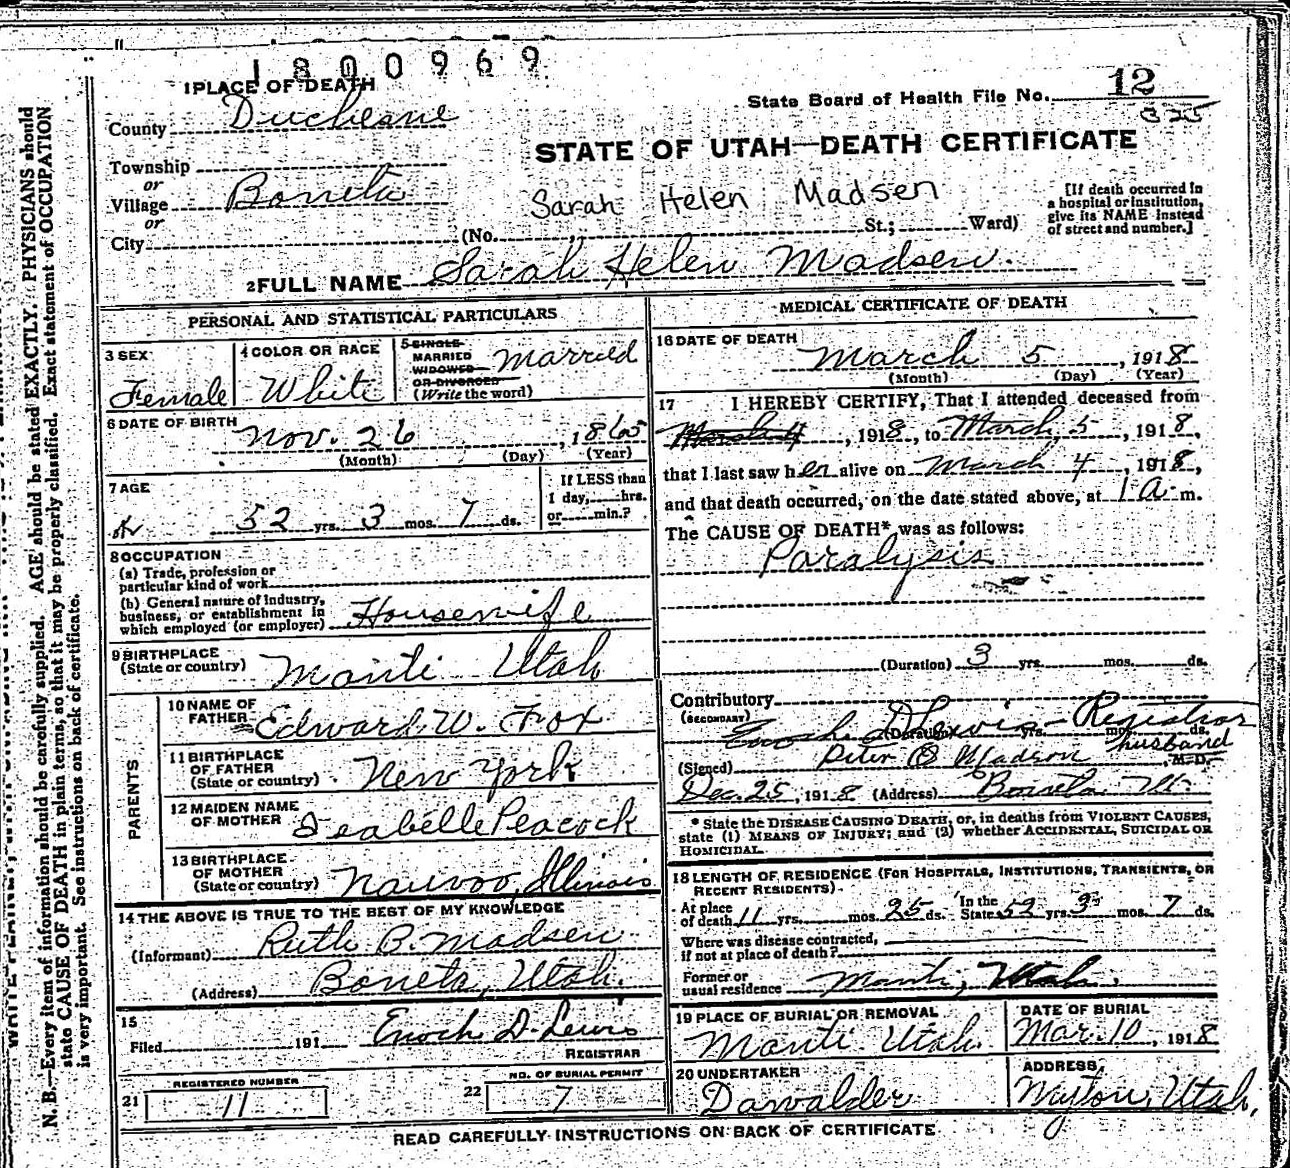 1800969
1 PLACE OF DEATH
County Duchesne
Township
or
Village Boneta
or
City (No. St.; Ward)
State Board of Health File No. 12
325
STATE OF UTAH—DEATH CERTIFICATE
Sarah Helen Madsen
[If death occurred in
a hospital or institution,
give its NAME instead
of street and number.]
2 FULL NAME Sarah Helen Madsen.
PERSONAL AND STATISTICAL PARTICULARS
3 SEX
Female
4 COLOR OR RACE
White
5 SINGLE
MARRIED
WIDOWED
OR DIVORCED
(Write the word)
Married
6 DATE OF BIRTH
Nov. 26, 1865
(Month) (Day) (Year)
7 AGE
52 yrs. 3 mos. 7 ds.
If LESS than
1 day, hrs.
or min.?
8 OCCUPATION
(a) Trade, profession or
particular kind of work
(b) General nature of industry,
business, or establishment in
which employed (or employer) Housewife
9 BIRTHPLACE
(State or country) Manti Utah
PARENTS
10 NAME OF
FATHER Edward W. Fox
11 BIRTHPLACE
OF FATHER
(State or country) New York
12 MAIDEN NAME
OF MOTHER Isabelle Peacock
13 BIRTHPLACE
OF MOTHER
(State or country) Nauvoo, Illinois
14 THE ABOVE IS TRUE TO THE BEST OF MY KNOWLEDGE
(Informant) Ruth B. Madsen
(Address) Boneta, Utah.
15
Filed 191 Enoch D. Lewis
REGISTRAR
21 REGISTERED NUMBER
11
22 NO. OF BURIAL PERMIT
7
MEDICAL CERTIFICATE OF DEATH
16 DATE OF DEATH
March 5, 1918
(Month) (Day) (Year)
17 I HEREBY CERTIFY, That I attended deceased from
March 4, 1918, to March, 5, 1918,
that I last saw her alive on March 4, 1918,
and that death occurred, on the date stated above, at 1 a. m.
The CAUSE OF DEATH* was as follows:
Paralysis
(Duration) 3 yrs. mos. ds.
Contributory
(SECONDARY)
Enoch D Lewis - Registrar
(Duration) yrs. mos. ds.
husband
(Signed) Peter O Madson, M.D.
Dec. 25, 1918 (Address) Boneta Ut
* State the DISEASE CAUSING DEATH, or, in deaths from VIOLENT CAUSES,
state (1) MEANS OF INJURY; and (2) whether ACCIDENTAL, SUICIDAL OR
HOMICIDAL.
18 LENGTH OF RESIDENCE (FOR HOSPITALS, INSTITUTIONS, TRANSIENTS, OR
RECENT RESIDENTS)
At place
of death 11 yrs. mos. 25 ds. In the
State 52 yrs. 3 mos. 7 ds.
Where was disease contracted,
if not at place of death?
Former or
usual residence Manti, Utah.
19 PLACE OF BURIAL OR REMOVAL
Manti Utah.
DATE OF BURIAL
Mar. 10, 1918
20 UNDERTAKER
Dawalder
ADDRESS
Myton, Utah,
READ CAREFULLY INSTRUCTIONS ON BACK OF CERTIFICATE
N. B.—Every item of information should be carefully supplied. AGE should be stated EXACTLY. PHYSICIANS should
state CAUSE OF DEATH in plain terms, so that it may be properly classified. Exact statement of OCCUPATION
is very important. See instructions on back of certificate.